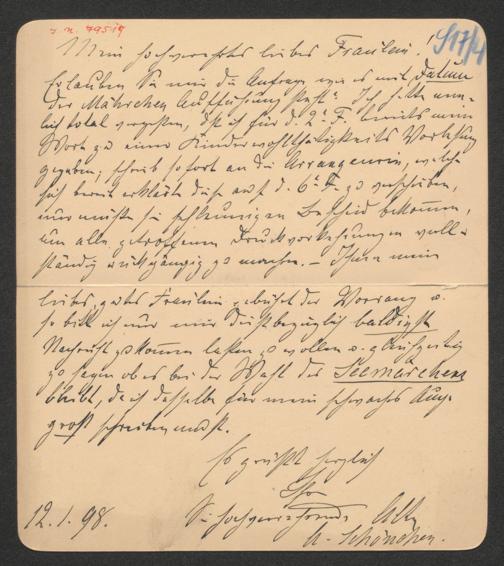 I. N. 79519
S17/4
Mein hochverehrtes liebes Fräulein!
Erlauben Sie mir die Anfrage wie es mit Datum
der Mährchen Aufführung steht? Ich hatte näm-
lich total vergessen, daß ich für d. 2. F. bereits mein
Wort zu einer Kinderwohlthätigkeits Vorlesung
gegeben, schrieb sofort an die Arrangeurin, welche
sich bereit erklärte diese auf d. 6. F. zu verschieben,
nur müsste sie schleunigen Bescheid bekommen,
um alle getroffenen Druckvorkehrungen voll-
ständig rückgängig zu machen. – Ihnen mein
liebes, gutes Fräulein gebührt der Vorrang u.
so bitt ich nur mir diesbezüglich baldigst
Nachricht zukommen lassen zu wollen u. gleichzeitig
zu sagen ob es bei der Wahl des Seemärchens
bleibt, da ich dasselbe für mein schwaches Auge
groß schreiben muß.
Es grüßt herzlich
Ihre
Sie hochverehrende Alte
A. Schönchen.
12.1.98.